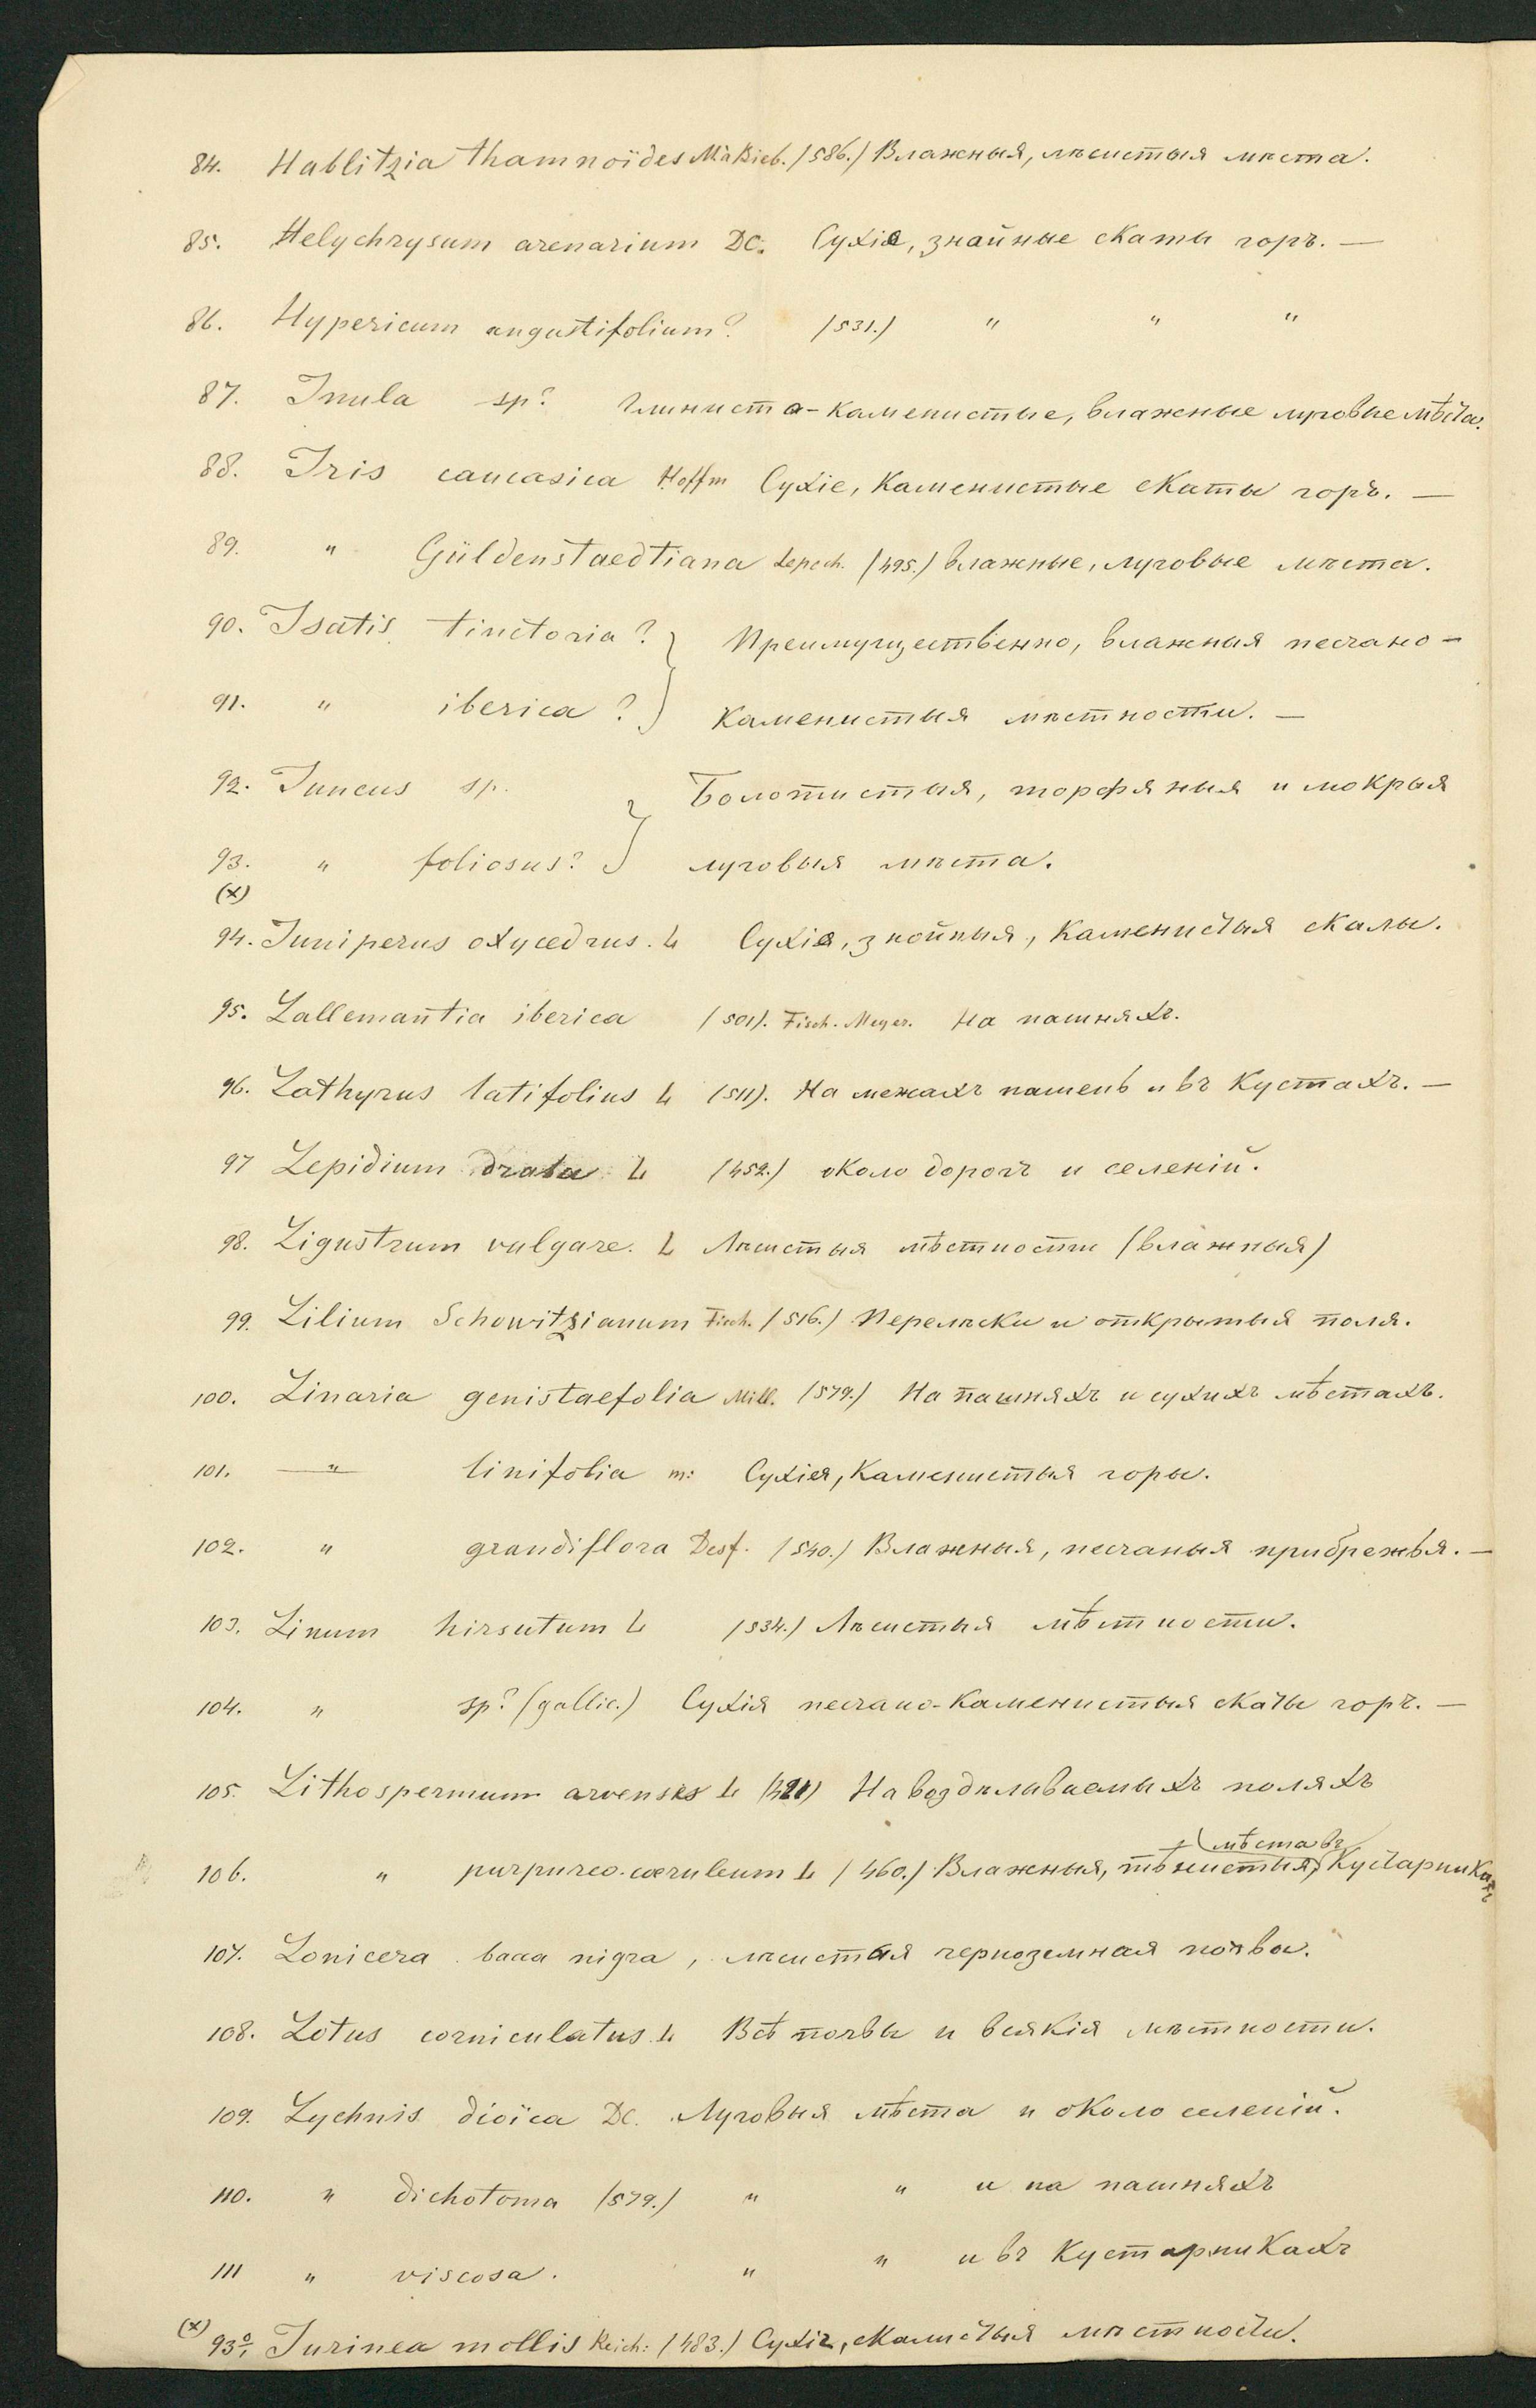 84. Hablitzia thamnoïdes M. à Bieb. (586.) Влажныя, лѣсистыя мѣста.
85. Helychrysum arenarium DC. Сухіе, знойные скаты горъ. —
86. Hypericum angustifolium? (531.) " " "
87. Inula sp? Глинисто-каменистые, влажные луговые мѣста.
88. Iris caucasica Hoffm Сухіе, каменистые скаты горъ. —
89. " Güldenstaedtiana Lepech. (495.) влажные, луговые мѣста.
90. Isatis tinctoria? } Преимущественно, влажныя песчано-
91. " iberica? } каменистыя мѣстности. —
92. Juncus sp. } Болотистыя, торфяныя и мокрыя
93. " foliosus? } луговыя мѣста.
(x)
94. Juniperus oxycedrus. L Сухія, знойныя, каменистыя скалы.
95. Lallemantia iberica (501). Fisch. Meyer. На пашняхъ.
96. Lathyrus latifolius L (511). На межахъ пашень и въ кустахъ. —
97 Lepidium draba L (452.) около дорогъ и селеній.
98. Ligustrum vulgare. L Лѣсистыя мѣстности (влажныя)
99. Lilium Schowitzianum Fisch. (516.) Перелѣски и открытыя поля.
100. Linaria genistaefolia Mill. (579.) На пашняхъ и сухихъ мѣстахъ.
101. —"— linifolia m: Сухія, каменистыя горы.
102. " grandiflora Desf. (540.) Влажныя, песчаныя прибрежья. —
103. Linum hirsutum L (534.) Лѣсистыя мѣстности.
104. " sp? (gallic.) Сухія песчано-каменистыя скаты горъ. —
105. Lithospermum arvense L (421) На воздѣлываемыхъ поляхъ
мѣста въ
106. " purpureo-cæruleum L (460.) Влажныя, тѣнистыя, кустарникахъ
107. Lonicera bacca nigra, лѣсистая черноземная почва.
108. Lotus corniculatus. L Всѣ почвы и всякія мѣстности.
109. Lychnis dioïca DC. Луговыя мѣста и около селеній.
110. " dichotoma (579.) " " и на пашняхъ
111 " viscosa. " " и въ кустарникахъ
(x) 93 Jurinea mollis Reich: (483.) Сухія, мѣстности.